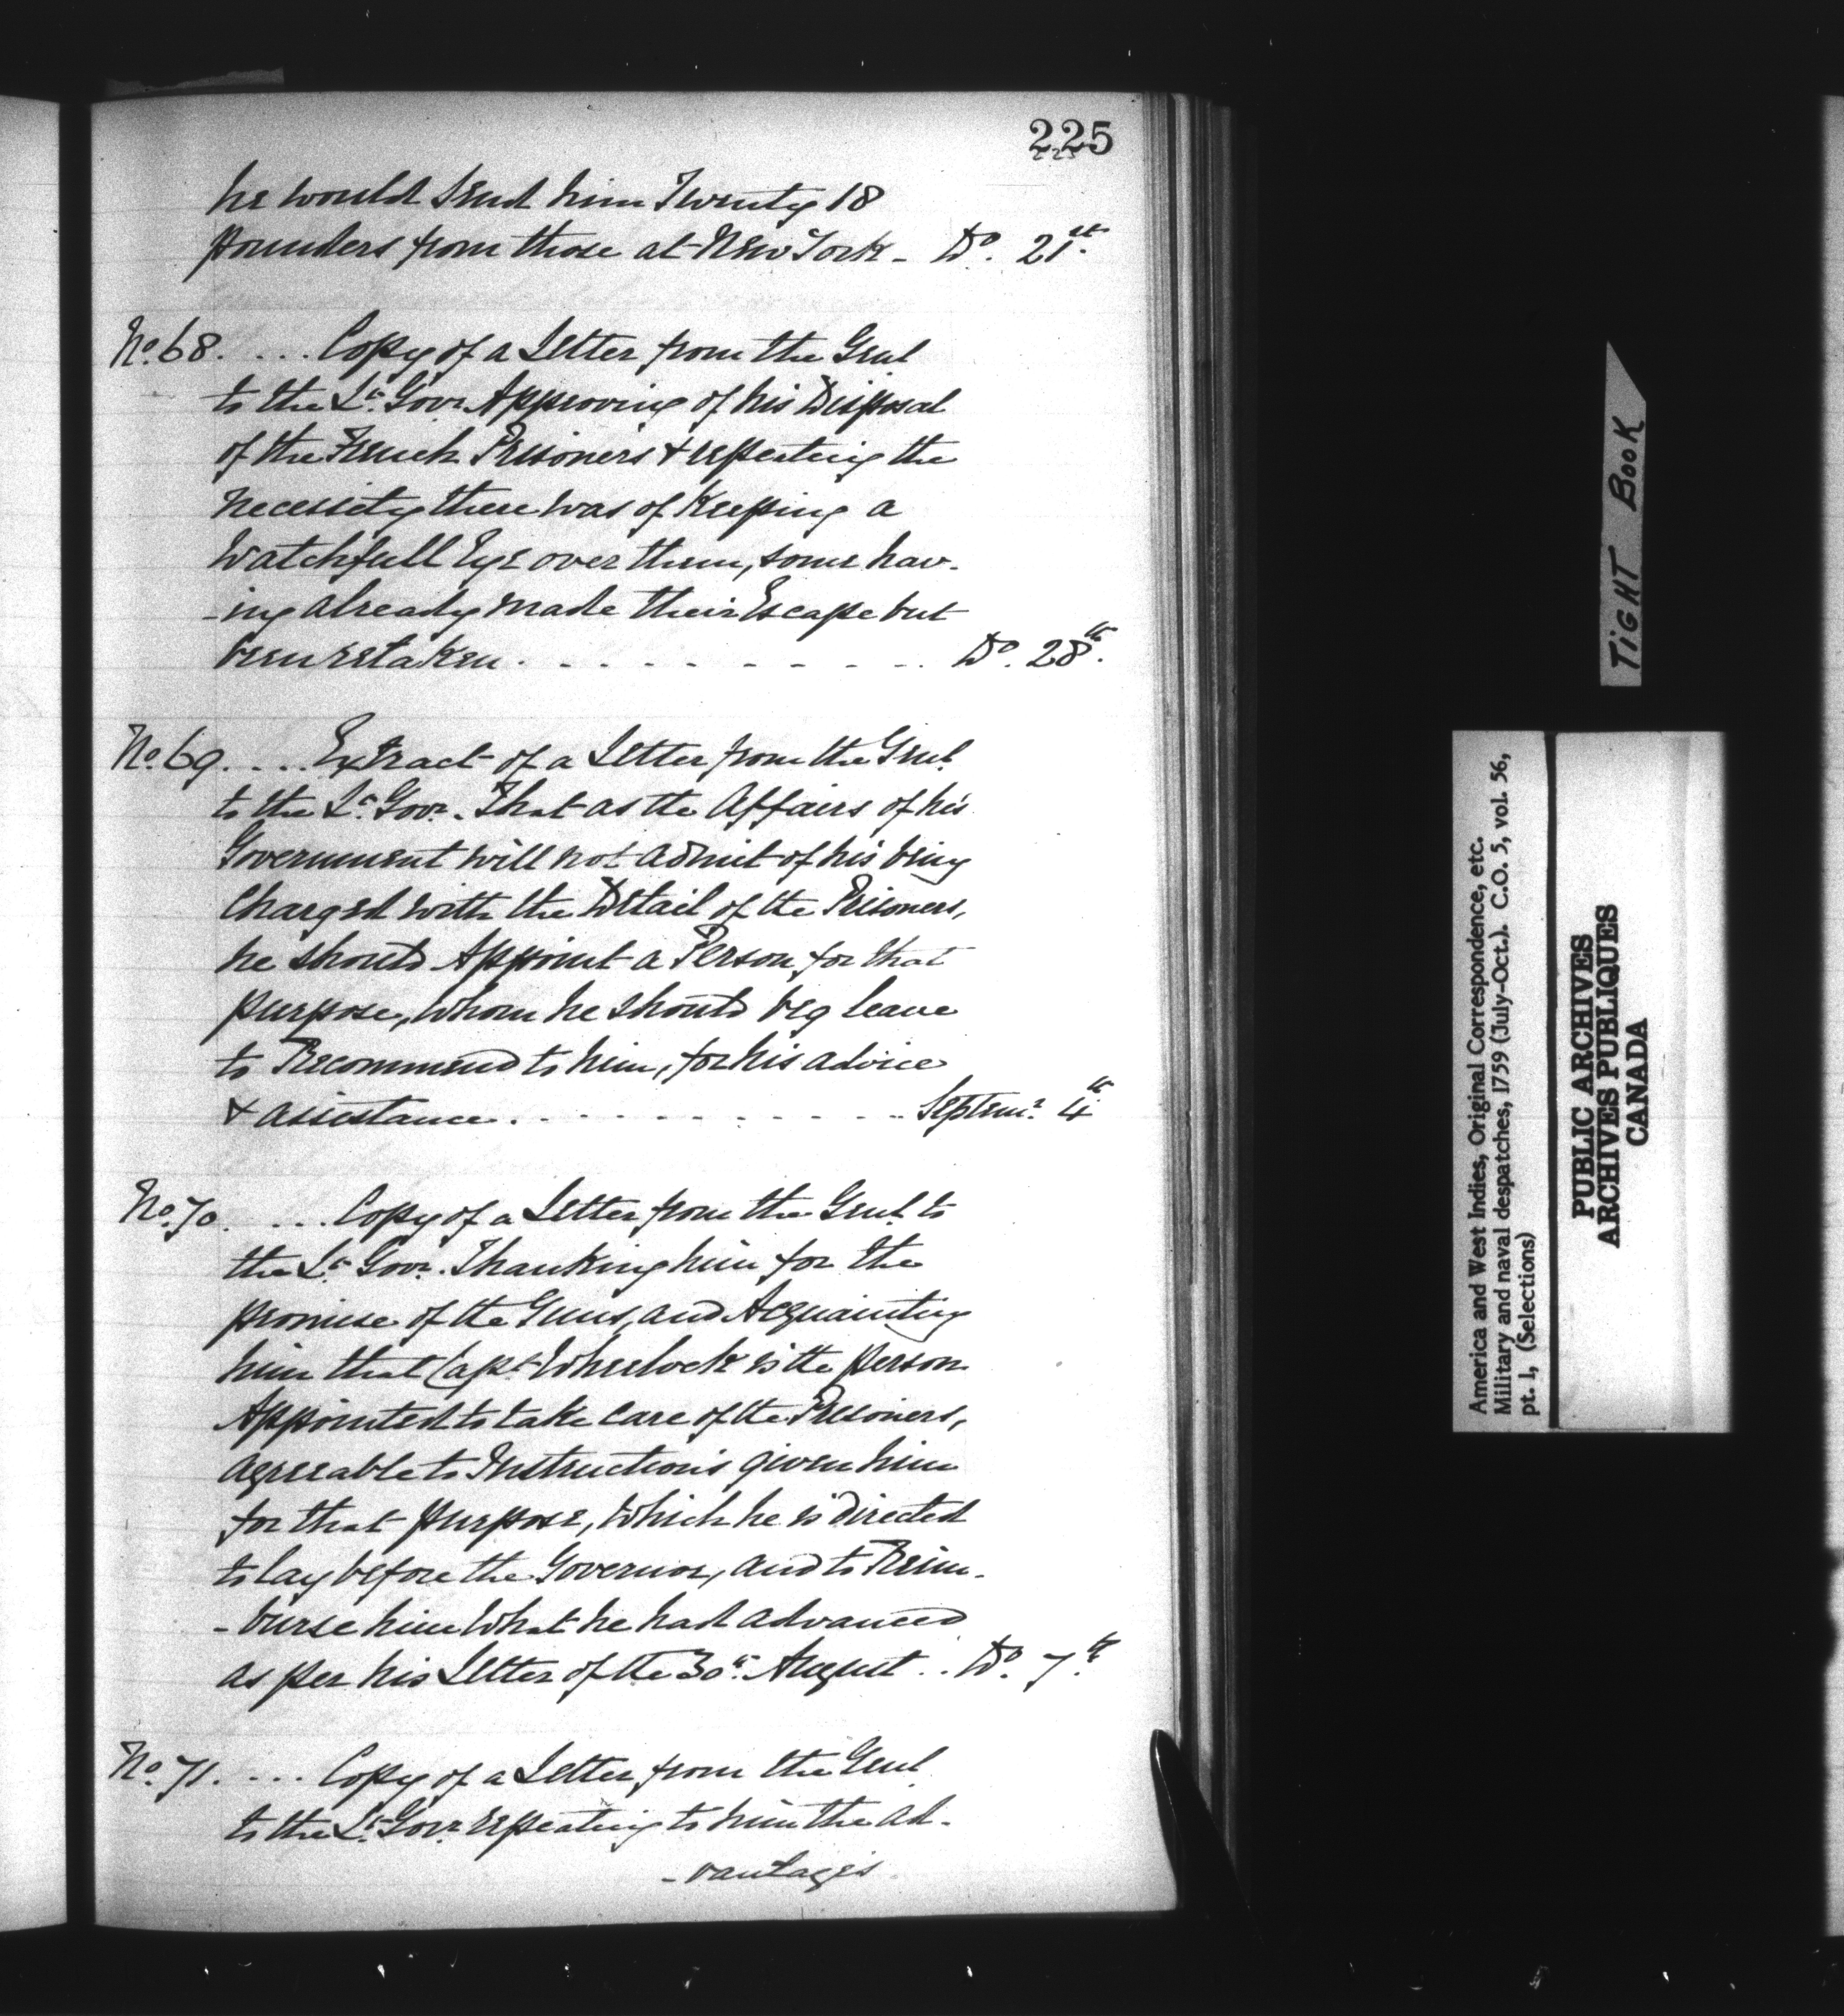 225
he would send him Twenty 18
pounders from those at New York - Do. 21st.
No. 68. . . . . Copy of a Letter from the Genl
to the Lt. Govr. Approving of his Disposal
of the French Prisoners & repeating the
necessity there was of Keeping a
Watchfull Eye over them, some hav-
-ing already made their Escape but
been retaken . . . . . . . . . . Do. 28th.
No. 69. . . . . Extract of a Letter from the Genl.
to the Lt. Govr. That as the Affairs of his
Government will not admit of his being
Charged with the Detail of the Prisoners,
he should Appoint a Person for that
purpose, whom he should beg leave
to Recommend to him, for his advice
& assistance . . . . . . . . . . Septemr. 4th
No. 70. . . . . Copy of a Letter from the Genl. to
the Lt. Govr. Thanking him for the
promise of the Guns, and Acquainting
him that Capt. Wheelock is the person
Appointed to take care of the Prisoners,
agreeable to Instructions given him
for that purpose, which he is directed
to lay before the Governor, and to Reim-
-burse him what he had advanced
as per his Letter of the 30th. August . . Do. 7th.
No. 71. . . . . Copy of a Letter from the Genl.
to the Lt. Govr. repeating to him the ad-
-vantages
TIGHT BOOK
America and West Indies, Original Correspondence, etc.
Military and naval despatches, 1759 (July-Oct.). C.O. 5, vol. 56,
pt. 1, (Selections)
PUBLIC ARCHIVES
ARCHIVES PUBLIQUES
CANADA